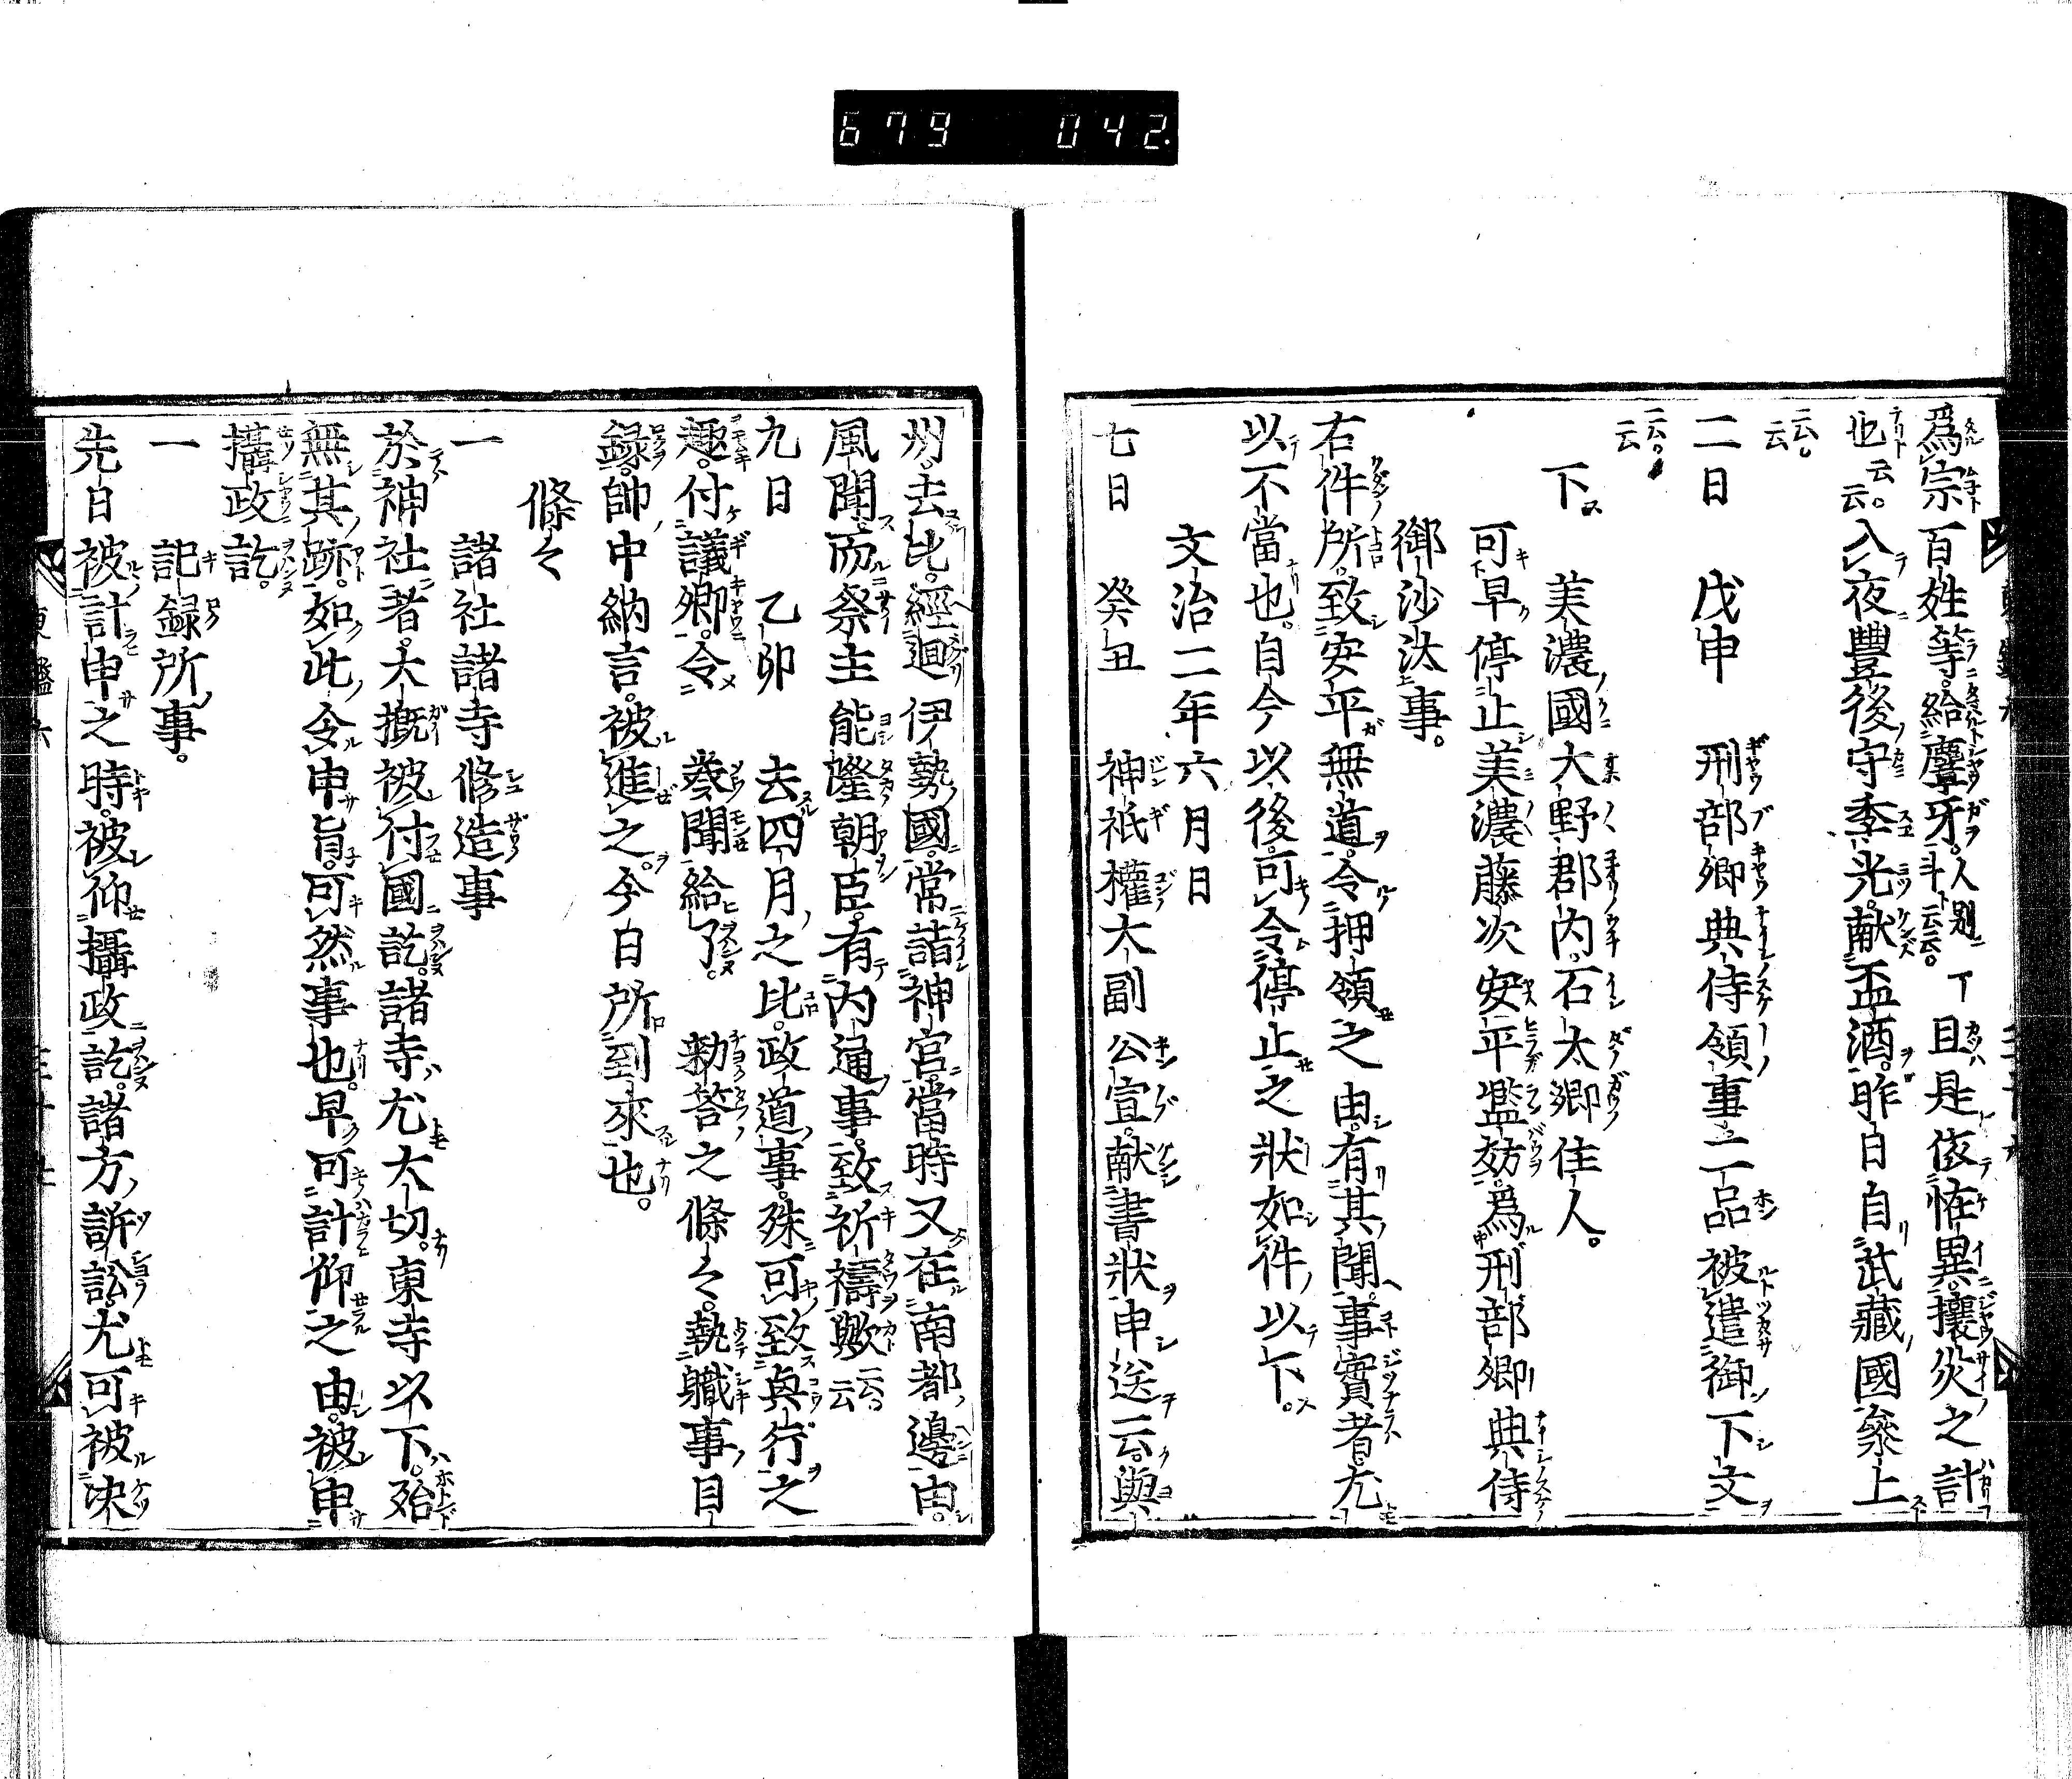 679 042.
爲宗百姓等。給麞牙。人別一斗云云。且是依恠異。攘災之計
也云云。入夜豐後守季光。献盃酒。昨日自武藏國參上
云云。
二日 戊申 刑部卿典侍領事二品被遣御下文
云云。
下 美濃國大野郡内。石太郷住人。
可早停止美濃藤次安平濫妨。爲刑部卿典侍
御沙汰事。
右件所。致安平無道。令押領之由。有其聞。事實者。尤
以不當也。自今以後。可令停止之狀如件。以下。
文治二年六月日
七日 癸丑 神祇權大副公宣。献書狀申送云。與
州。去比。經迴伊勢國。常詣神宮。當時又在南都邊由。
風聞。而祭主能隆朝臣。有内通事。致祈禱歟云云
九日 乙卯 去四月之比。政道事。殊可致興行之
趣。付議卿。令奏聞給了。勅答之條々。執職事目
録。帥中納言。被進之。今日所到來也。
條々
一 諸社諸寺修造事
於神社者。大概被付國訖。諸寺尤大切。東寺以下。殆
無其跡。如此令申旨。可然事也。早可計仰之由。被申
攝政訖。
一 記録所事。
先日被計申之時。被仰攝政訖。諸方訴訟。尤可被决